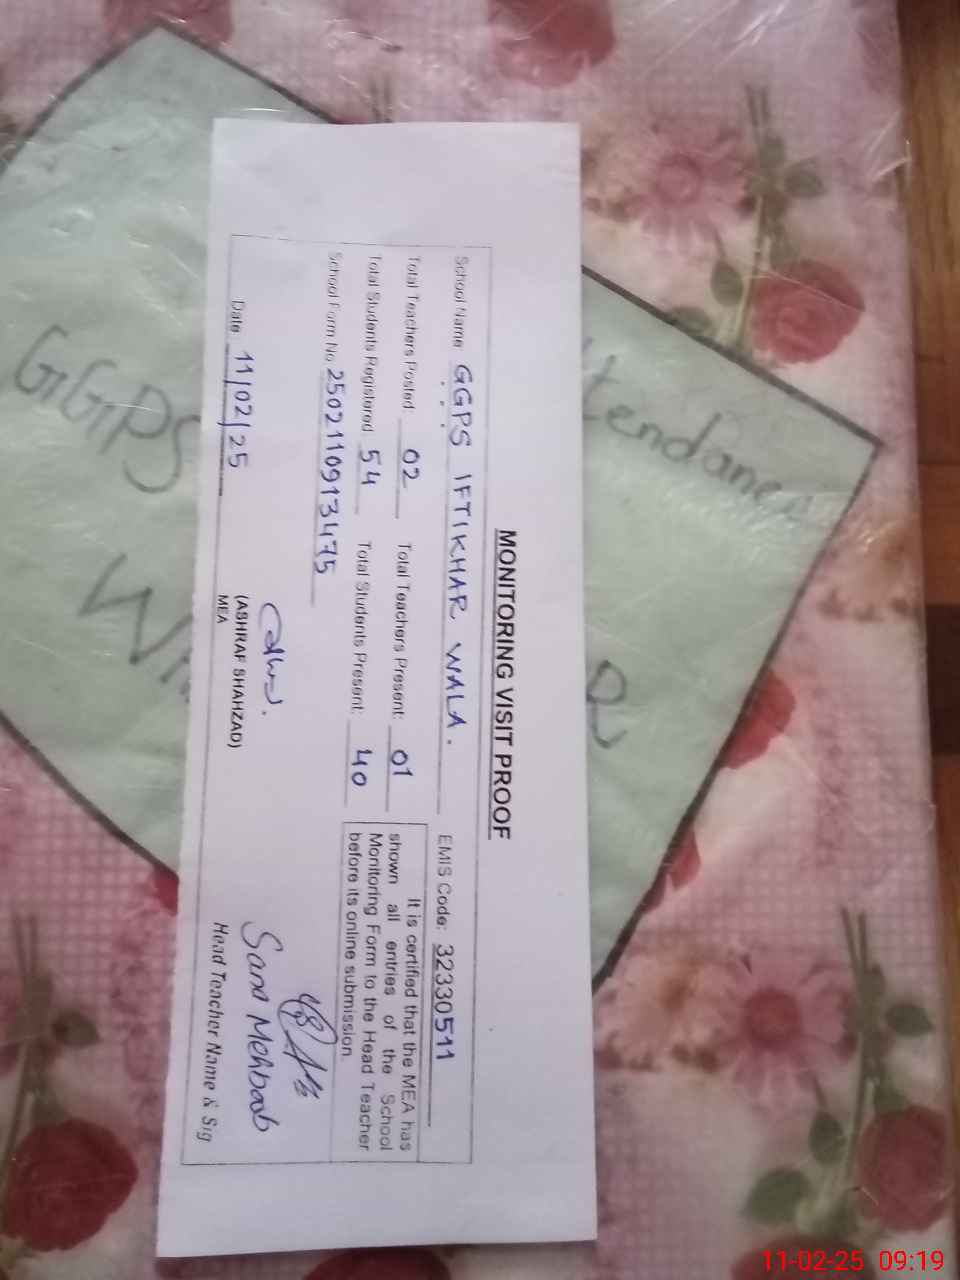 MONITORING VISIT PROOF
School Name GGPS IFTIKHAR WALA. EMIS Code: 32330511
Total Teachers Posted 02 Total Teachers Present: 01
Total Students Registered 54 Total Students Present: 40
School Form No 250211091 3475
It is certified that the MEA has
shown all entries of the School
Monitoring Form to the Head Teacher
before its online submission.
Date: 11/02/25
(ASHRAF SHAHZAD)
MEA
Sana Mehboob
Head Teacher Name & Sig
GGPS
11-02-25 09:19